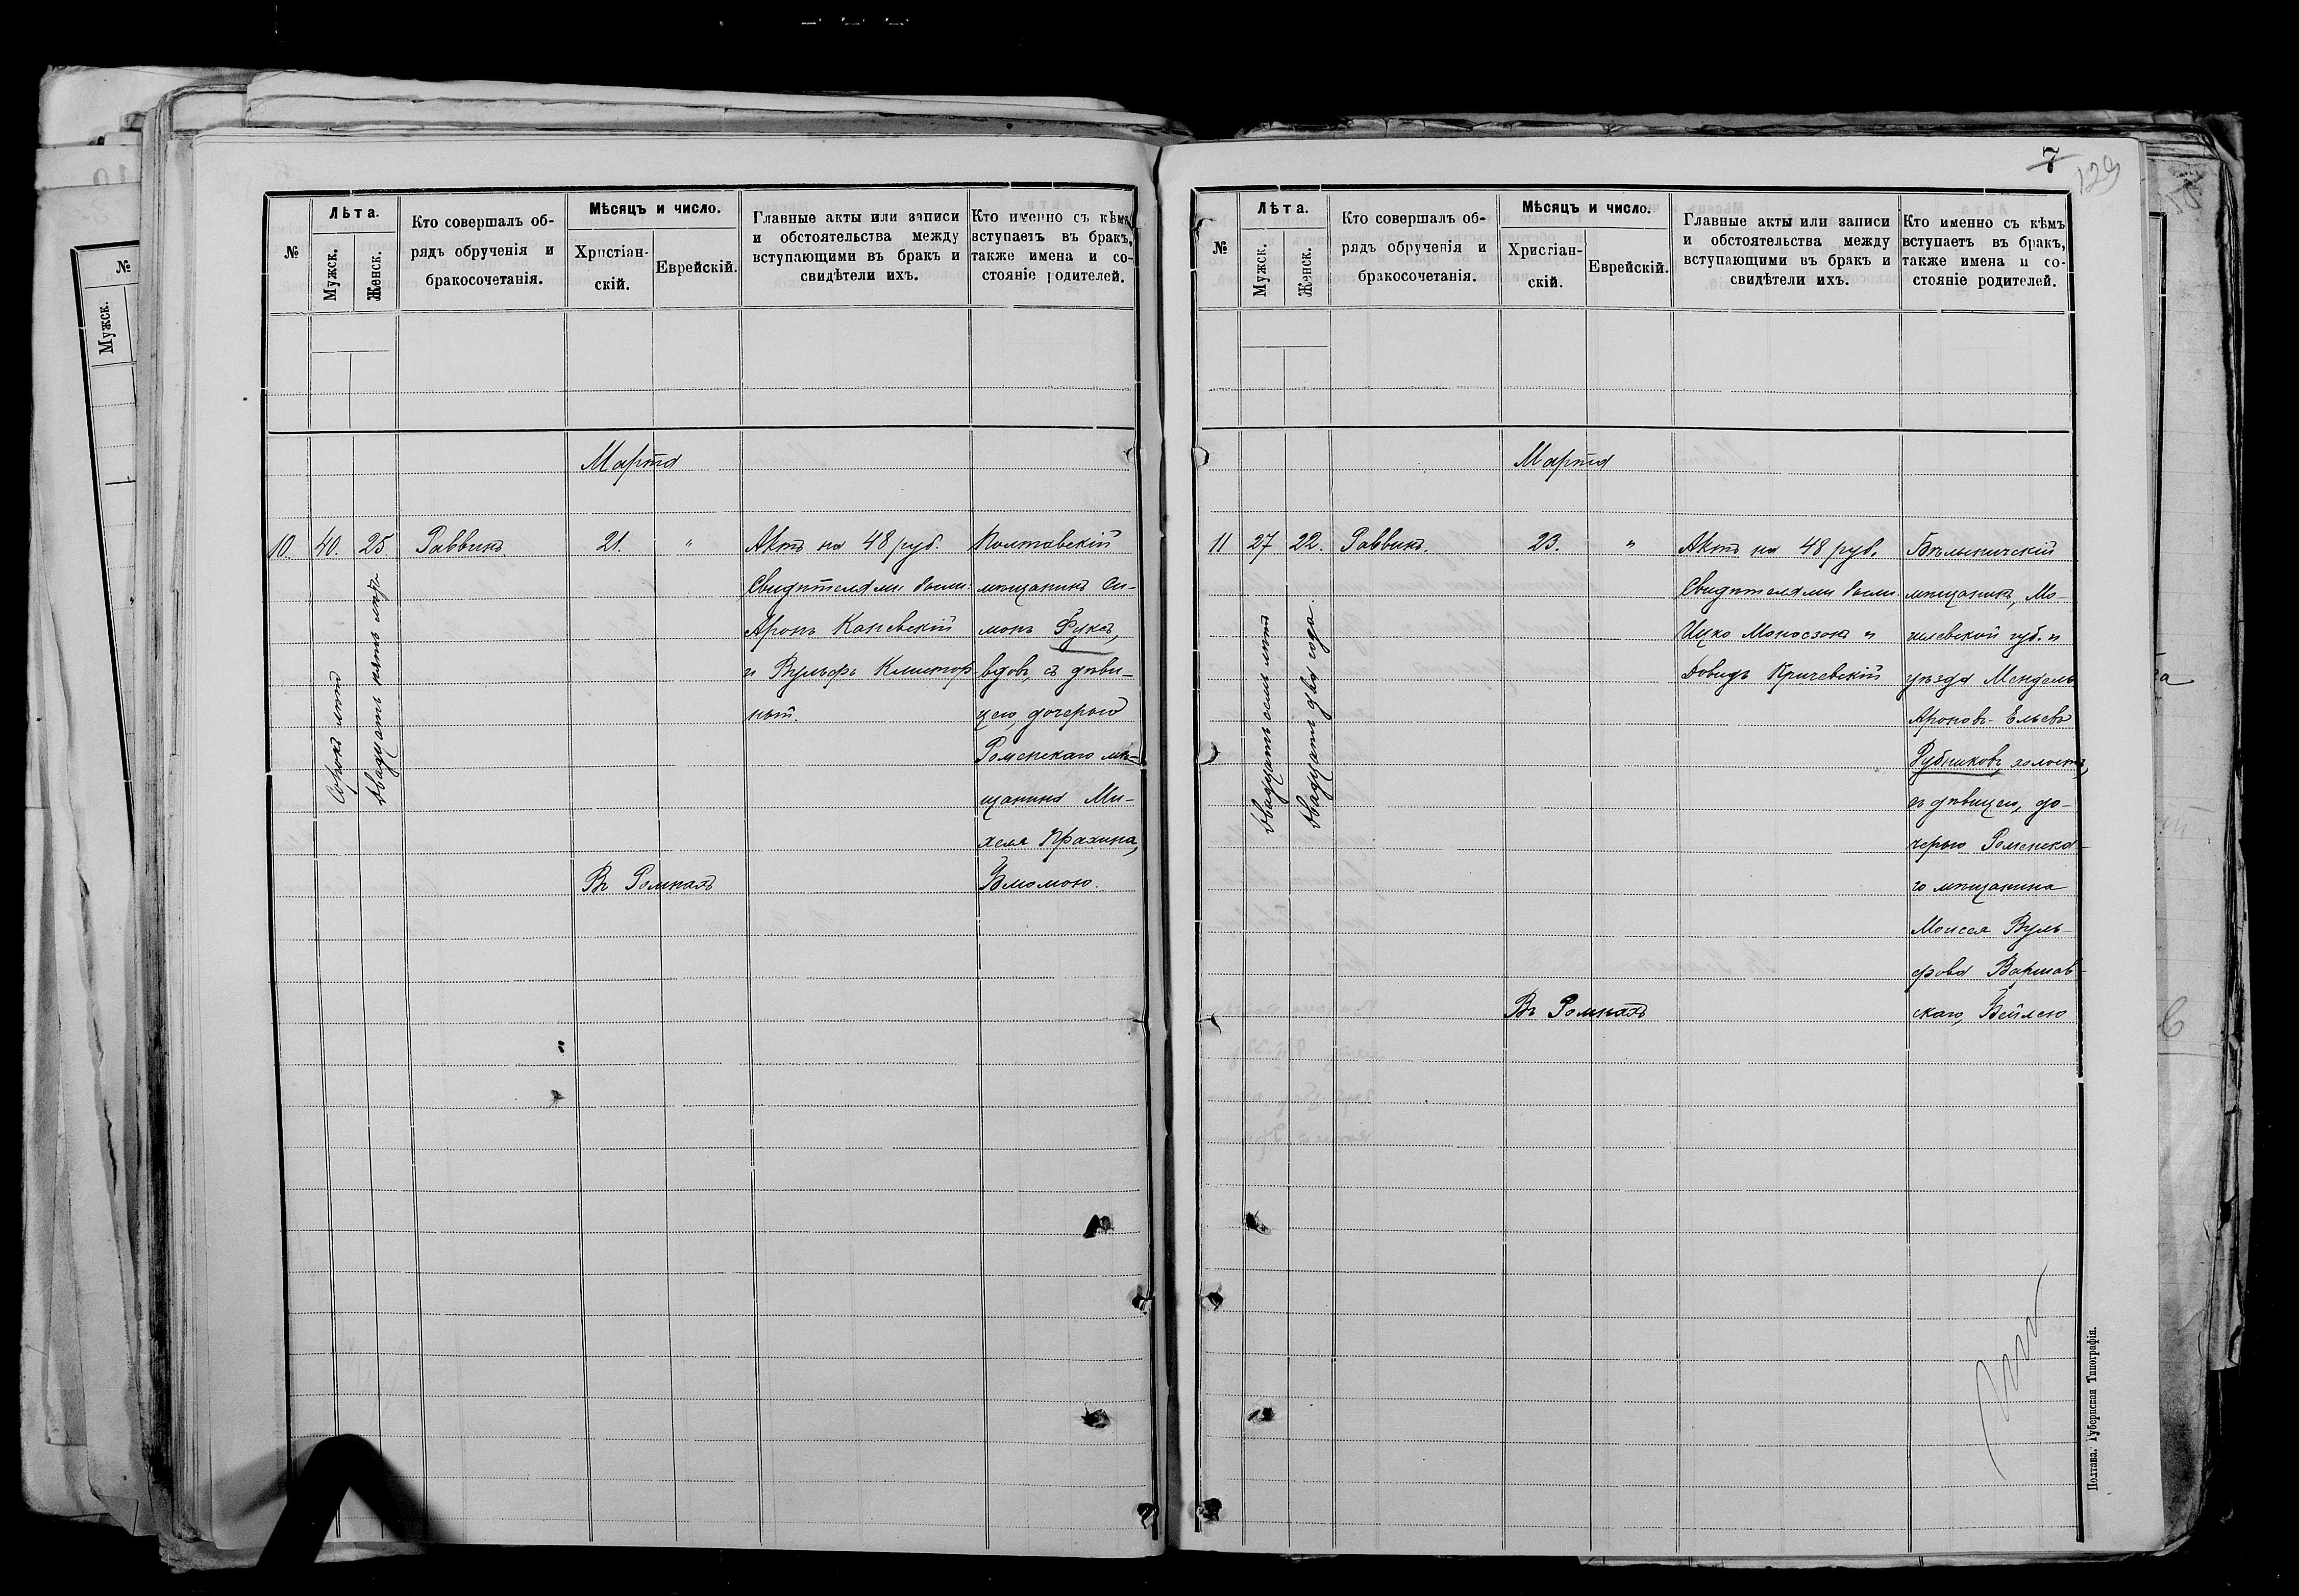 №
Лѣта.
Мужск.
Женск.
Кто совершалъ об-
рядъ обрученія и
бракосочетанія.
Мѣсяцъ и число.
Христіан-
скій.
Еврейскій.
Главные акты или записи
и обстоятельства между
вступающими въ бракъ и
свидѣтели ихъ.
Кто именно съ кѣмъ
вступаетъ въ бракъ,
также имена и со-
стояніе родителей.
Марта
10. 40. 25 Раввинъ. 21. "
Сорокъ лѣтъ
двадцать пять лѣтъ
Актъ на 48 руб.
Свидѣтелями были:
Аронъ Каневскій
и Вульфъ
Полтавскій
мѣщанинъ Си-
монъ Фуксъ,
вдовъ, съ дѣви-
цею, дочерью
Роменскаго мѣ-
щанина Ми-
хеля Прахина,
Въ Ромнахъ
№
Мужск.
7
129
№
Лѣта.
Мужск.
Женск.
Кто совершалъ об-
рядъ обрученія и
бракосочетанія.
Мѣсяцъ и число.
Христіан-
скій.
Еврейскій.
Главные акты или записи
и обстоятельства между
вступающими въ бракъ и
свидѣтели ихъ.
Кто именно съ кѣмъ
вступаетъ въ бракъ,
также имена и со-
стояніе родителей.
Марта
11 27 22. Раввинъ. 23. "
двадцать семь лѣтъ
двадцать два года.
Актъ на 48 руб.
Свидѣтелями были
Ицко Моносзонъ и
Довидъ Кричевскій
Бѣлыничскій
мѣщанинъ, Мо-
гилевской губ. и
уѣзда Мендель
Ароновъ-Ельевъ
Рубниковъ, холостъ,
съ дѣвицею, до-
черью Роменска-
го мѣщанина
Моисея Вуль-
фова Варшав-
скаго, Бейлею
Въ Ромнахъ
Полтава. Губернская Типографія.